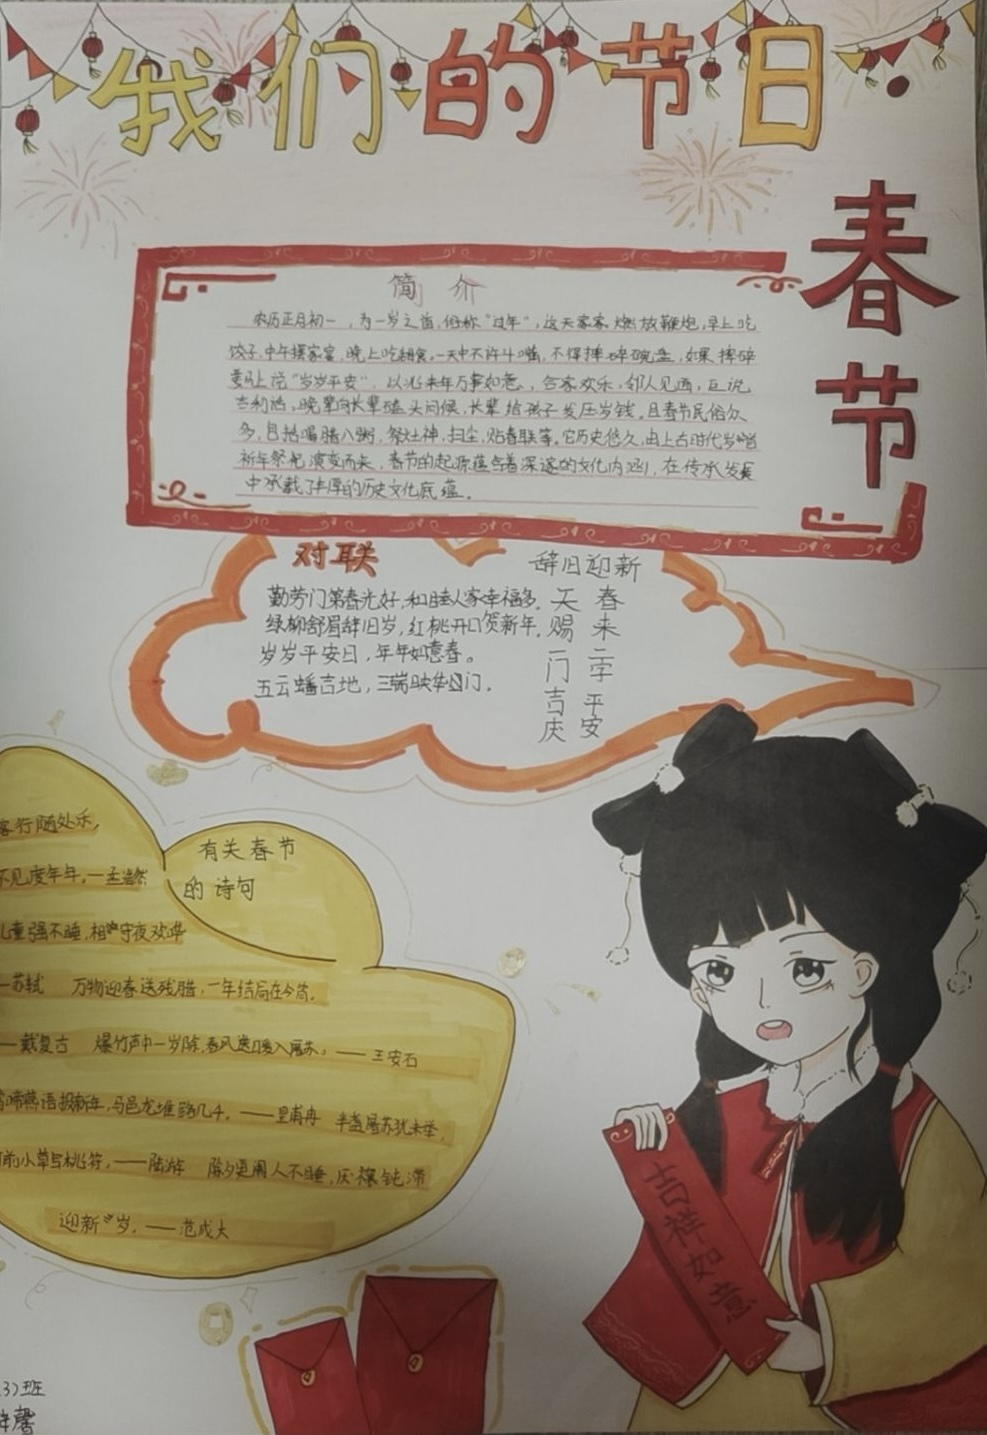 我们的节日
春节
简介
农历正月初一，为一岁之首，俗称“过年”，这天家家燃放鞭炮，早上吃
饺子，中午摆家宴，晚上吃，一天中不许斗嘴，不得摔碎碗盘，如果摔碎
要马上说“岁岁平安”，以兆来年万事如意，合家欢乐，邻人见面，互说
吉利话，晚辈向长辈磕头问候，长辈给孩子发压岁钱。且春节民俗众
多，包括喝腊八粥，祭灶神，扫尘，贴春联等。它历史悠久，由上古时代岁首
祈年祭祀演变而来，春节的起源蕴含着深邃的文化内涵，在传承发展
中承载了丰厚的历史文化底蕴。
对联
勤劳门第春光好，和睦人家幸福多。
绿柳舒眉辞旧岁，红桃开口贺新年。
岁岁平安日，年年如意春。
五云蟠吉地，三瑞映华门。
辞旧迎新
天赐一门吉庆
春来二字平安
有关春节
的诗句
客行随处乐，
不见度年年。—孟浩然
儿童强不睡，相守守夜欢哗
—苏轼 万物迎春送残腊，一年结局在今宵。
—戴复古 爆竹声中一岁除，春风送暖入屠苏。——王安石
莺啼燕语报新年，马邑龙堆路几千。——皇甫冉 半盏屠苏犹未举，
灯前小草写桃符，——陆游 除夕更阑人不睡，厌禳钝滞
迎新岁。——范成大
吉祥如意
3）班
馨